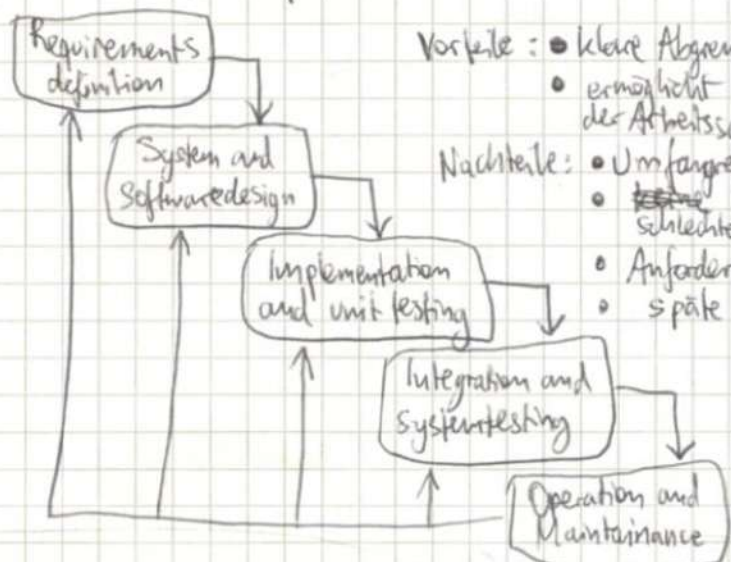 Requirements
definition
System and
Softwaredesign
Implementation
and unit testing
Integration and
systemtesting
Operation and
Maintainance
Vorteile: • klare Abgren
• ermöglicht
der Arbeitssc
Nachteile: • Umfangre
•
schlechte
• Anforder
• späte